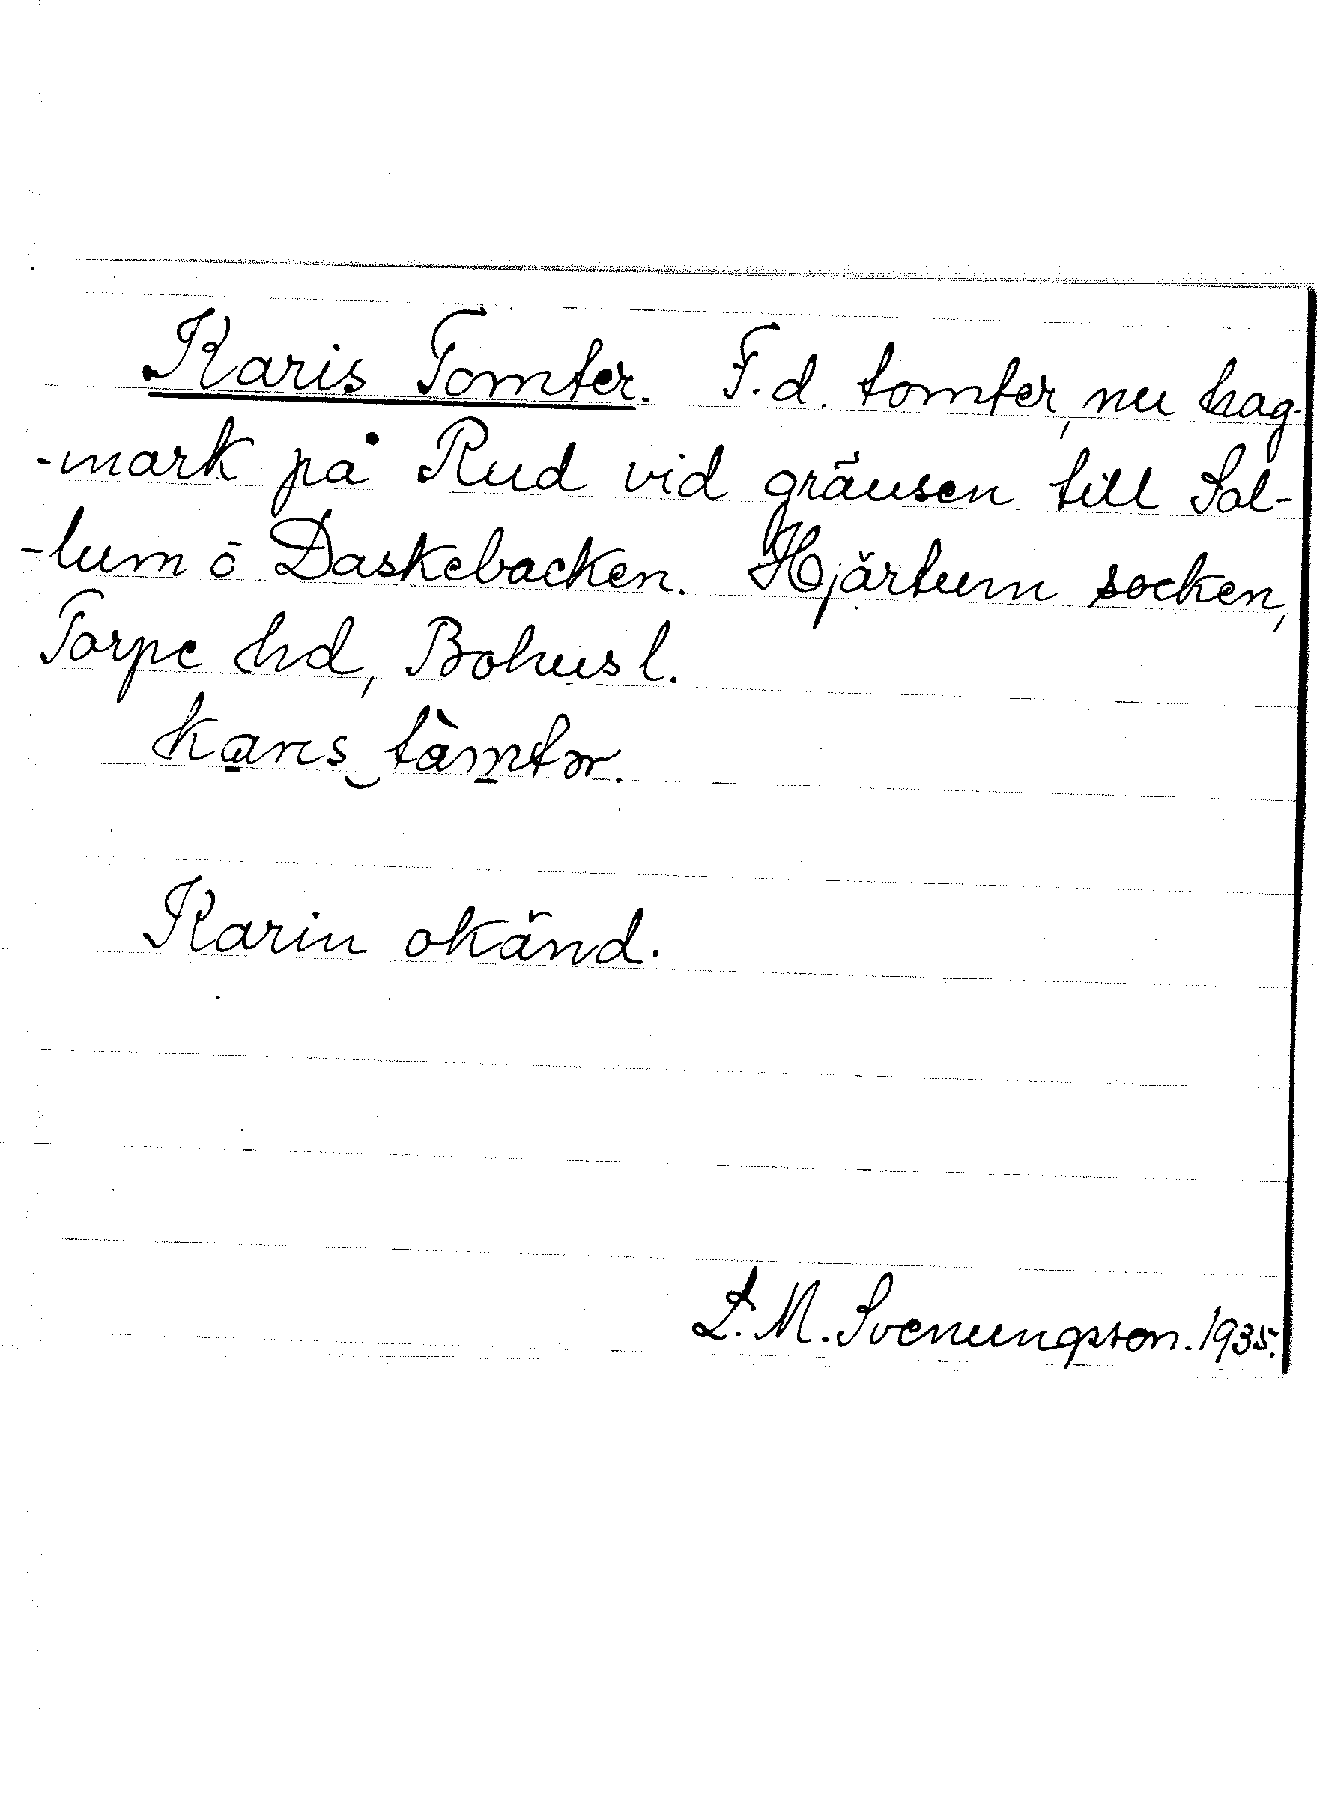 Karis Tomter. F.d. tomter, nu hag-
-mark på Rud vid gränsen till Sol-
-lum ō Daskebacken. Hjärtum socken,
Torpe hd, Bohusl.
Karin okänd.
L. M. Svenungsson. 1935.